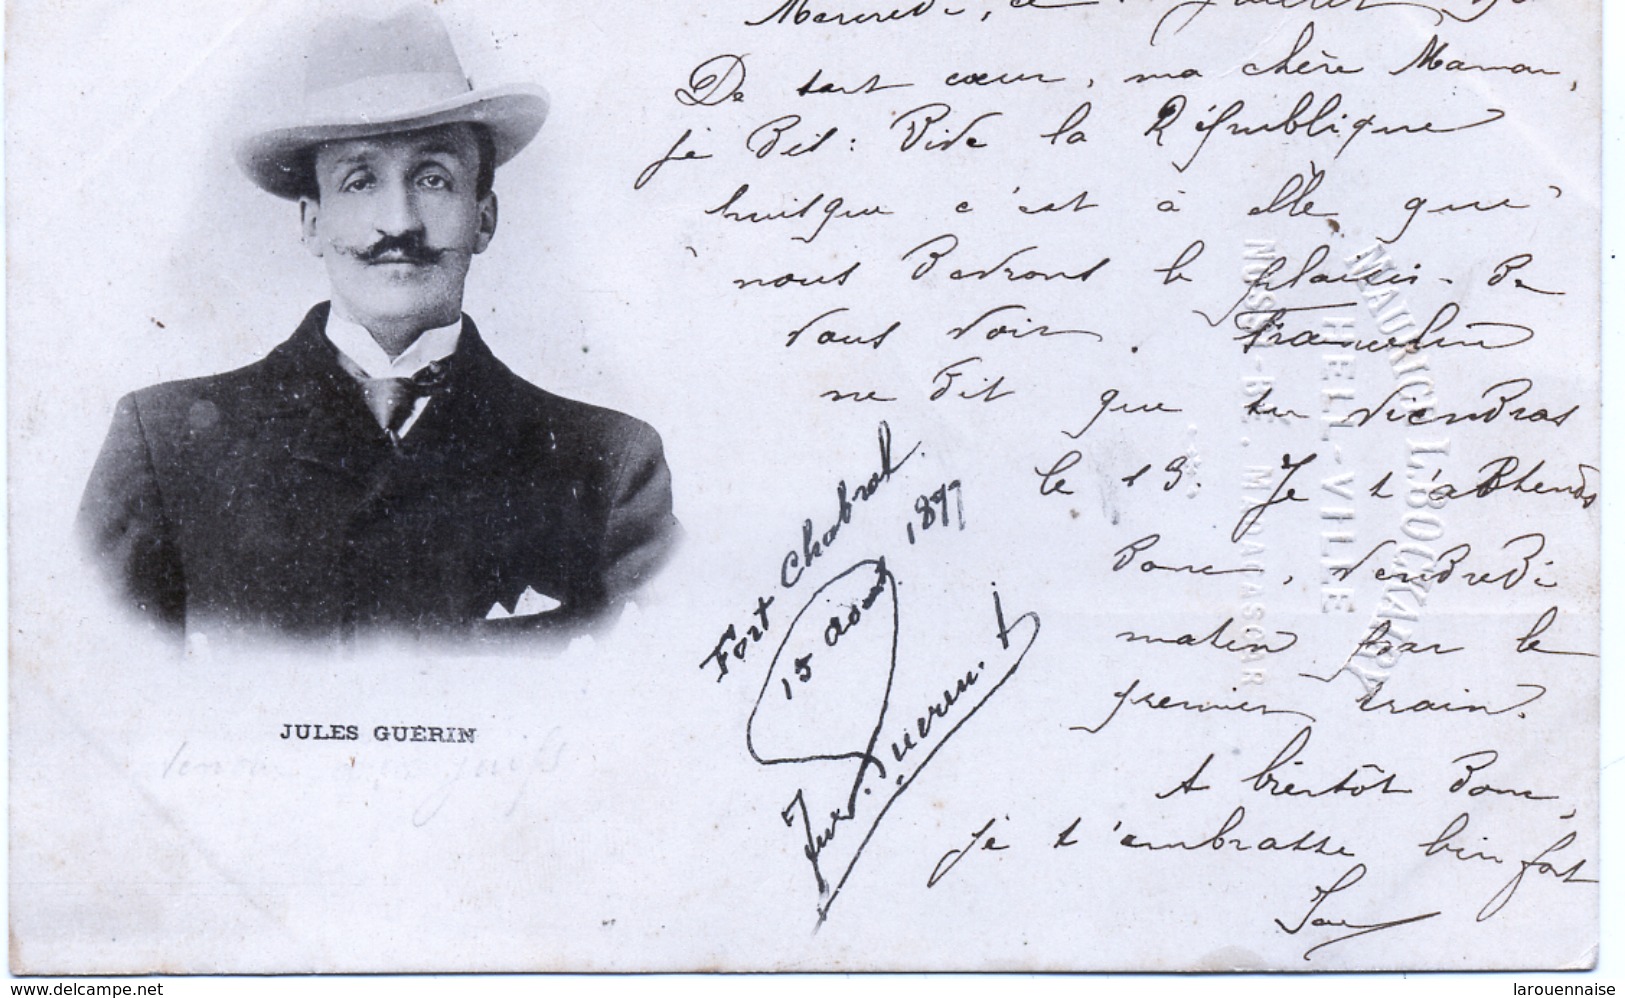 Mercredi, ce Juillet
De tout cœur, ma chère Maman,
je dis : Vive la République
puisque c'est à elle que
nous devrons le plaisir de
vous voir. Francelin
me dit que tu viendras
le 13. Je t'attends
donc, vendredi
matin par le
premier train.
A bientôt donc,
je t'embrasse bien fort
JULES GUÉRIN
Fort Chabrol
15 août 1899
MAURICE L. BOCKARY
HELL-VILLE
NOSSI-BÉ. MADAGASCAR
www.delcampe.net
larouennaise